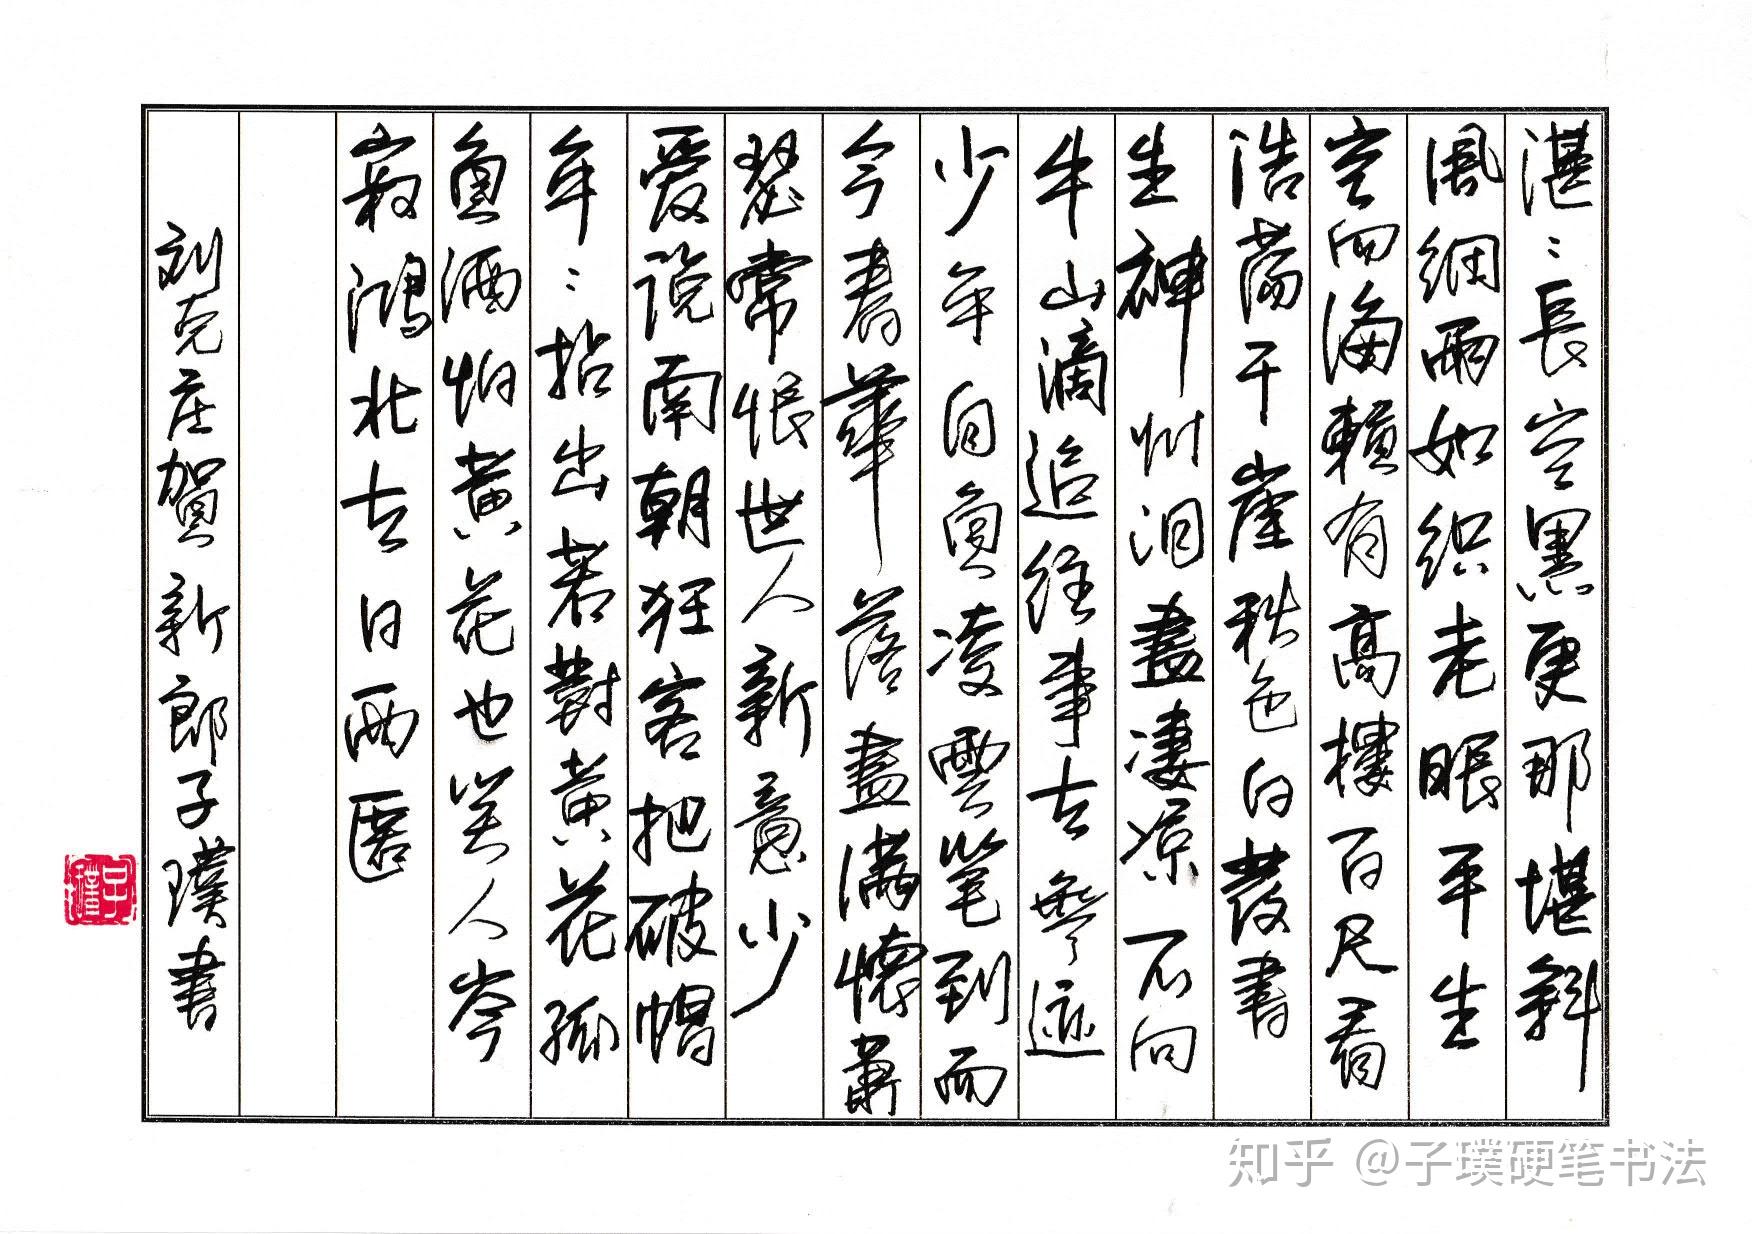 湛〻長空黑更那堪斜
風細雨如织老眼平生
空四海賴有高樓百尺看
浩蕩千崖秋色白发書
生神州泪盡凄凉不向
牛山滴追往事去無迹
少年自負凌雲笔到而
今春華落盡满懷蕭
瑟常恨世人新意少
爱説南朝狂客把破帽
年〻拈出若對黄花孤
負酒怕黄花也笑人岑
寂鴻北去日西匿
刘克庄賀新郎子璞書
子璞
知乎 @子璞硬笔书法